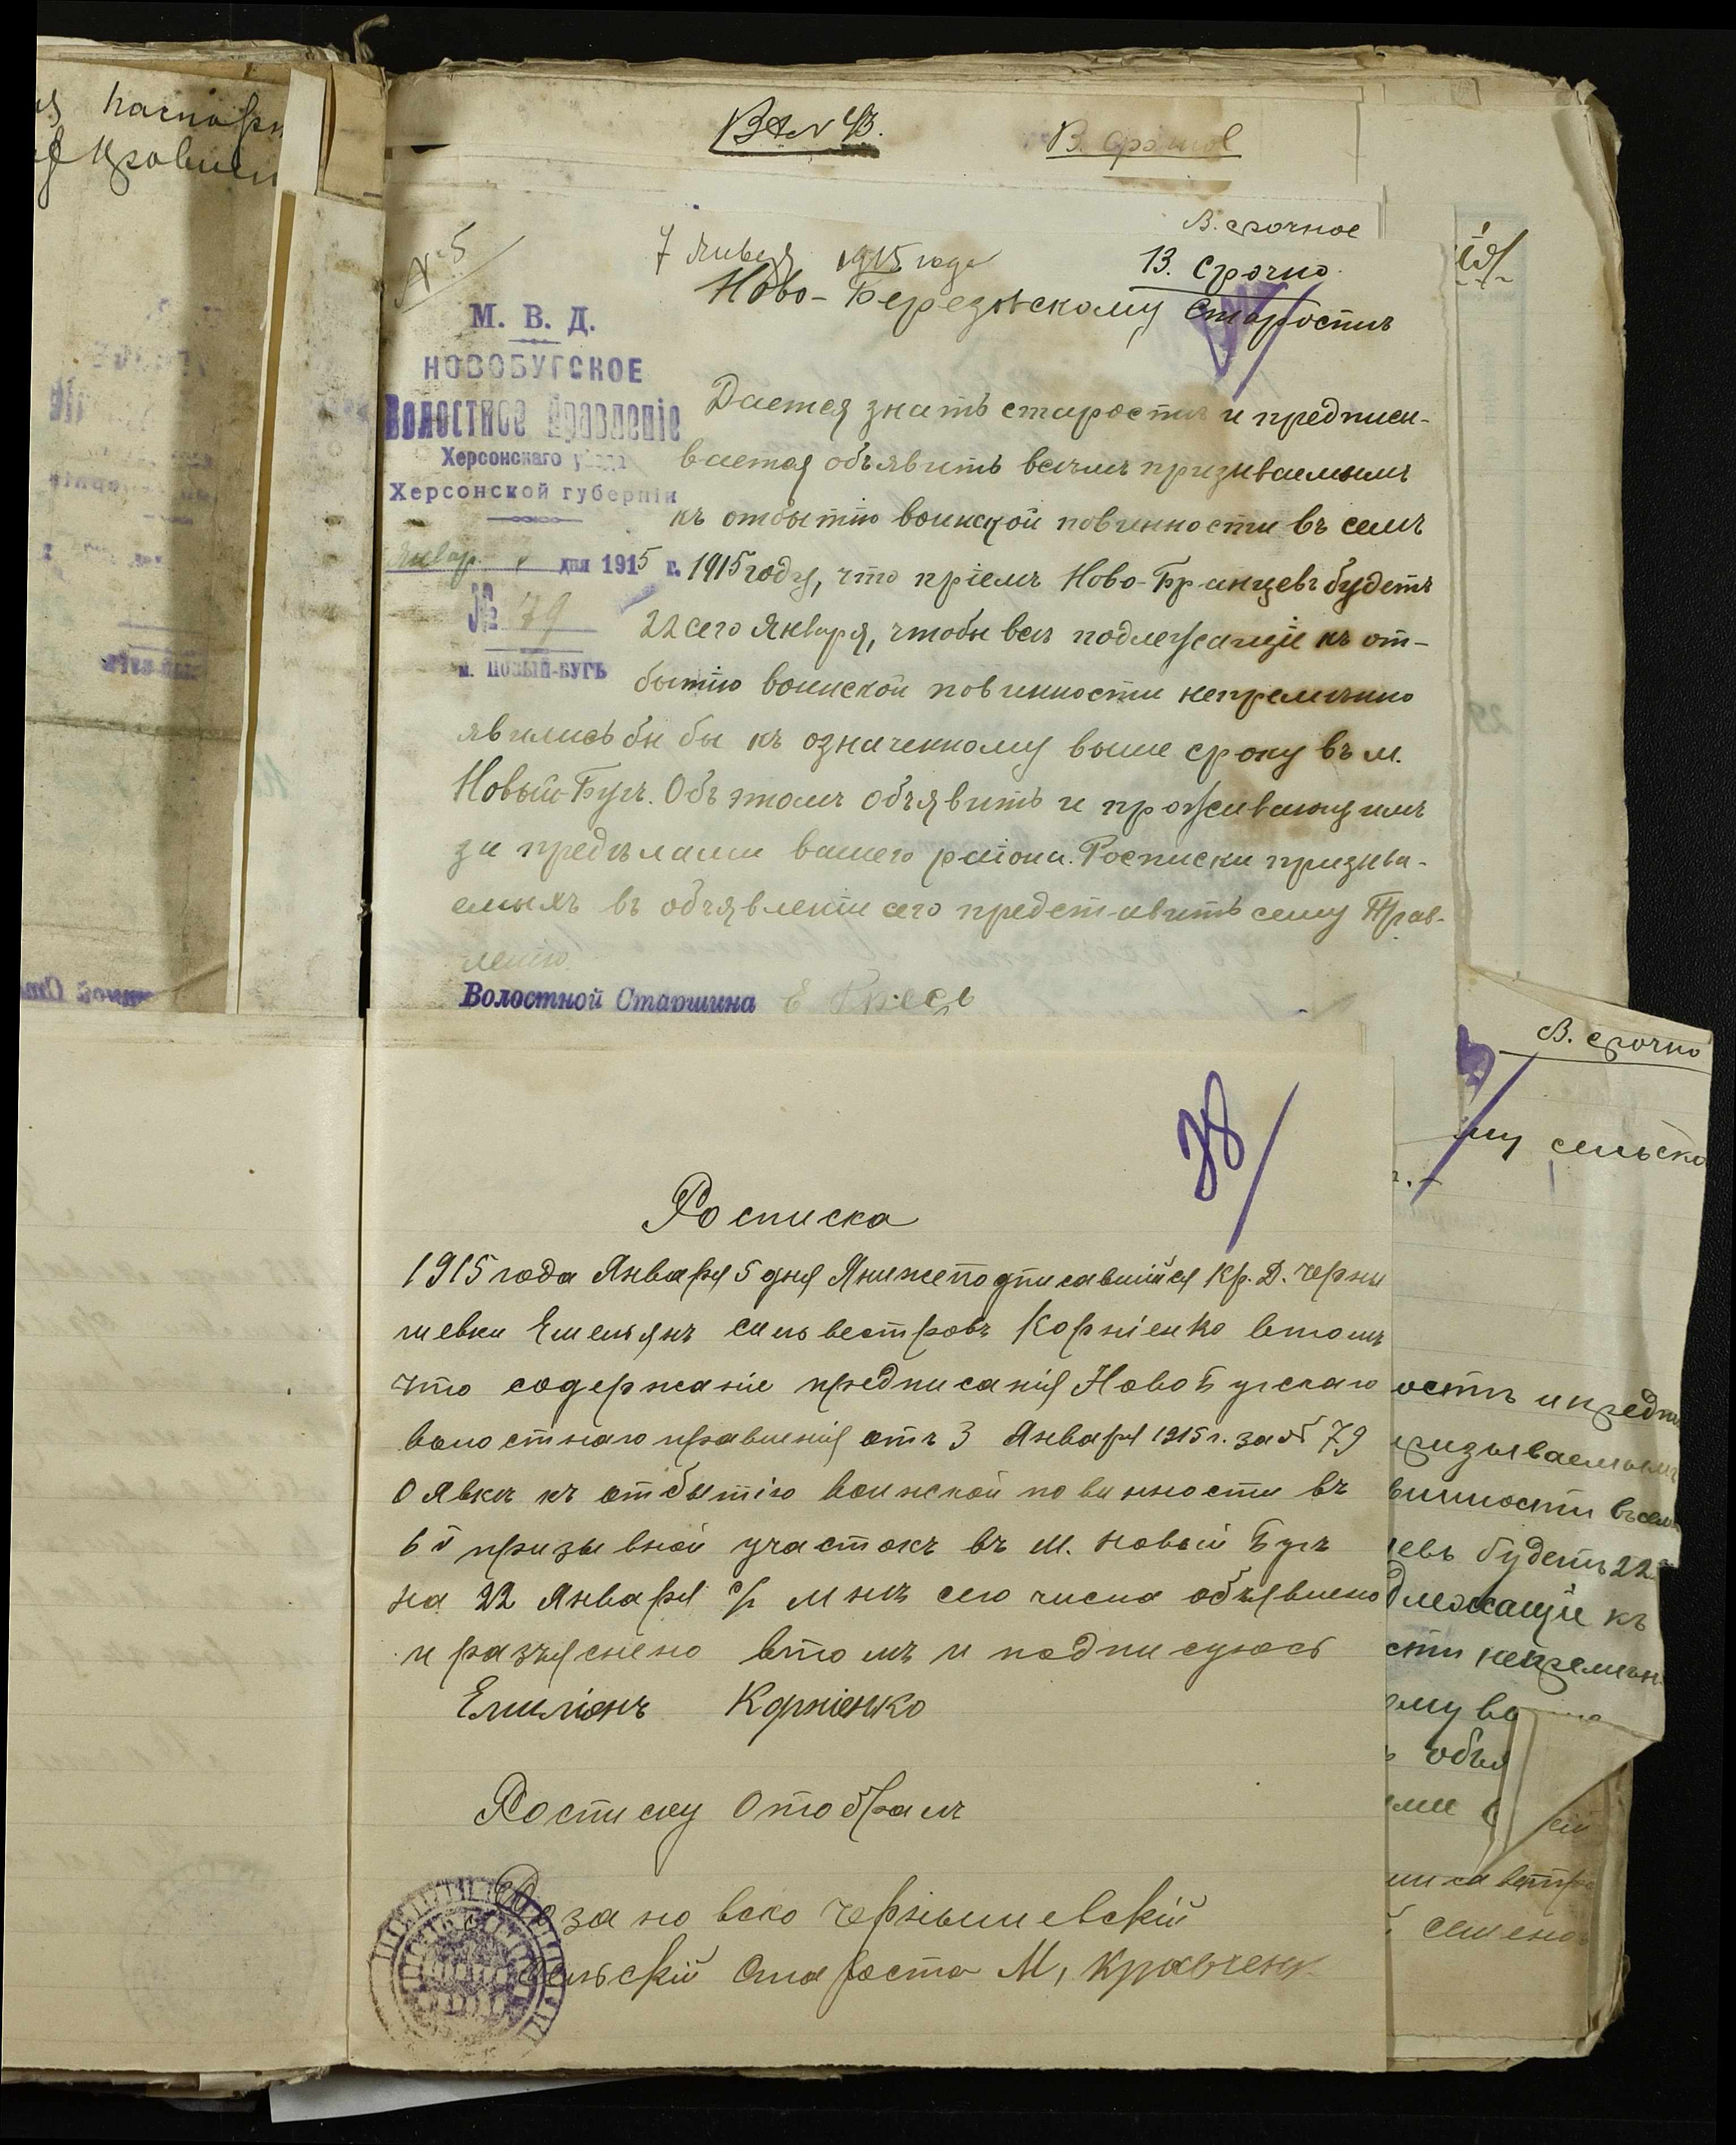 паспорт
В. срочно
№ 5
В. срочное
7 Января 1915 года
В. Срочно
Ново-Березовскому Старостѣ
М. В. Д.
НОВОБУГСКОЕ
Волостное Правленіе
Херсонскаго уѣзда
Херсонской губерніи
Январ. дня 1915 г.
№ 79
м. НОВЫЙ-БУГЪ
Дается знать старостѣ и предписы-
вается объявить всѣмъ призываемымъ
къ отбытію воинской повинности въ семъ
1915 году, что пріемъ Ново-Бранцевъ будетъ
22 сего Января, чтобы всѣ подлежащіе къ от-
бытію воинской повинности непремѣнно
явились бы бы къ означенному выше сроку въ м.
Новый-Бугъ. Объ этомъ объявить и проживающимъ
за предѣлами вашего района. Росписки призыва-
емыхъ въ объявленіи сего представить сему Прав-
ленію
Волостной Старшина Е
38
Росписка
1915 года Января 5 дня Я нижеподписавшійся Кр. Д. Черны
шевки Емельянъ Сильвестровъ Корніенко втомъ
что содержаніе предписанія НовоБугскаго
волостного правленія отъ 3 Января 1915 г. за № 79
О явкѣ къ отбытію воинской повинности въ
6й призывной участокъ въ М. Новый Бугъ
на 22 Января с/г мнѣ сего числа объявлено
и разъяснено втомъ и подписуюсь
Емиліянъ Корніенко
Росписку Отобралъ
Розановско Чернышевскій
Сельскій Староста М, Кравченк
В. срочно
му сельско
ость и предпи
ризываемымъ
винности въ семъ
евъ будетъ 22
длежащіе къ
сти непремѣн
ому
объя
ями
семено